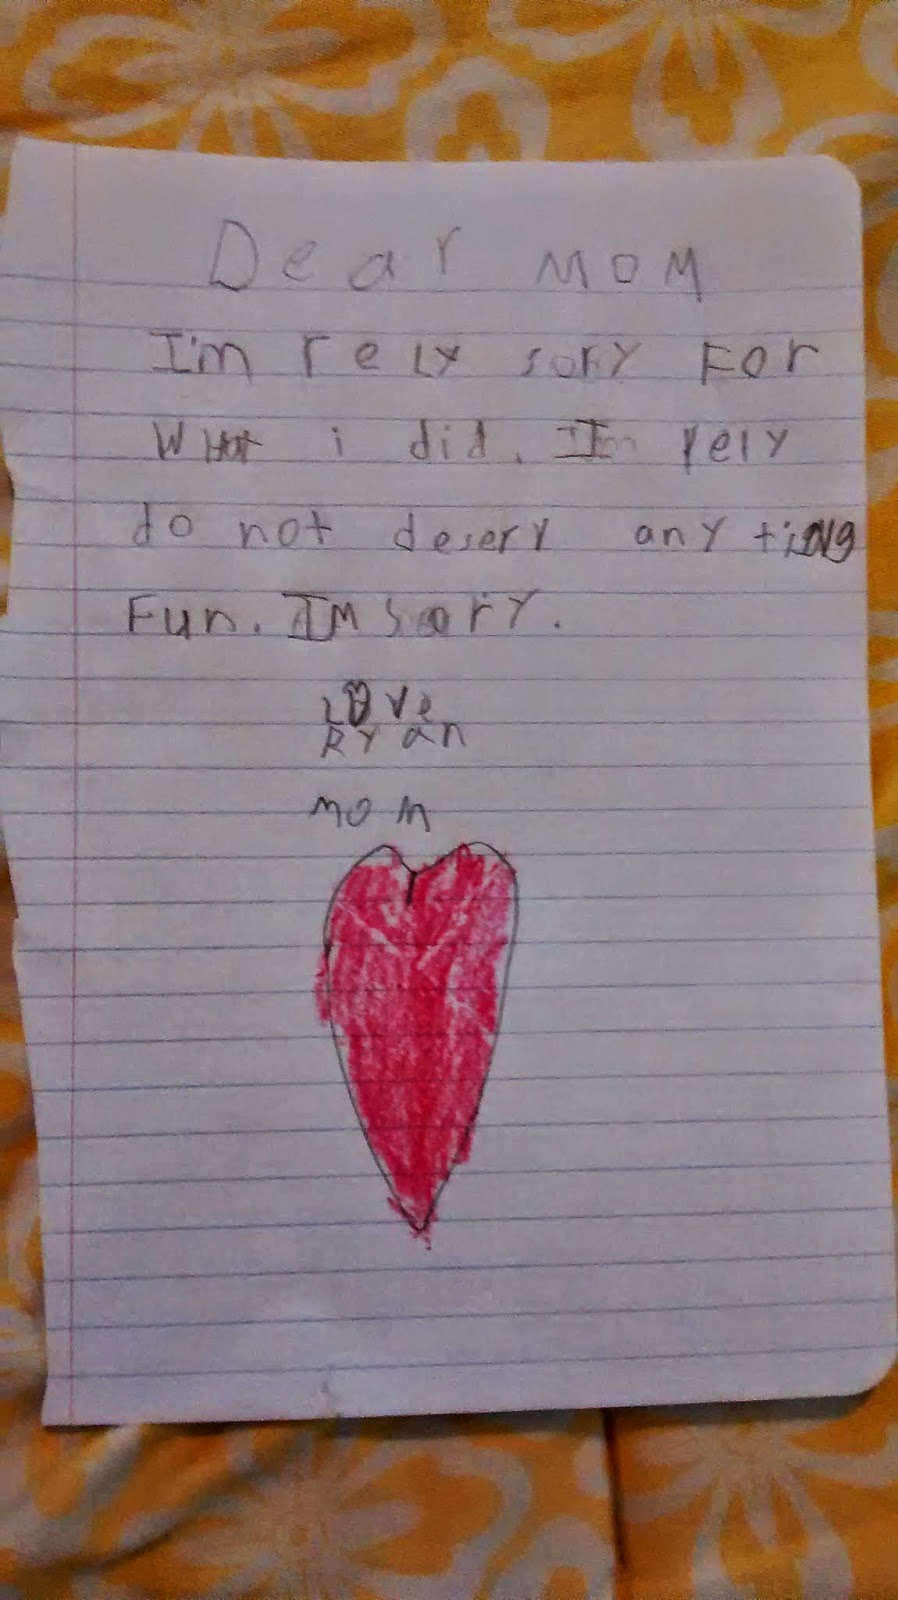 Dear MOM
I'm rely sory For
What i did. Im rely
do not desery any ting
Fun. IM sory.
Love
Ryan
MOM